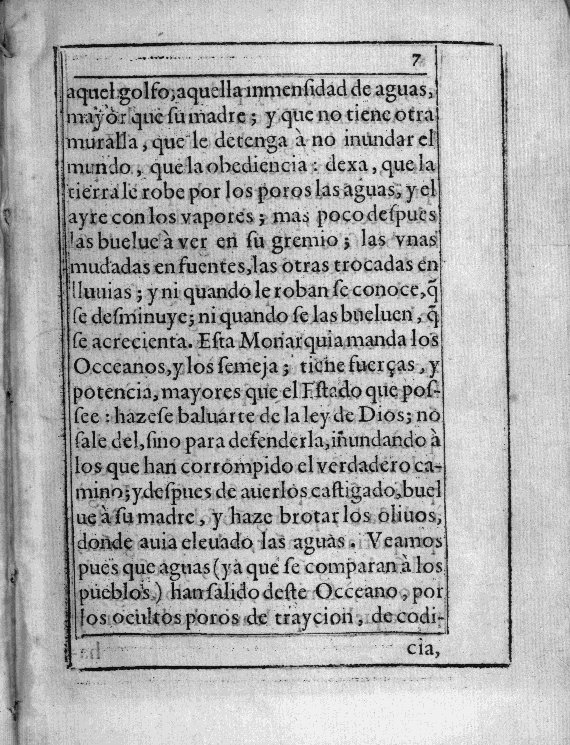 7
aquel golfo; aquella inmensidad de aguas,
mayor que su madre; y que no tiene otra
muralla, que le detenga à no inundar el
mundo, que la obediencia: dexa, que la
tierra le robe por los poros las aguas, y el
ayre con los vapores; mas poco deſpues
las buelue à ver en su gremio; las vnas
mudadas en fuentes, las otras trocadas en
lluuias; y ni quando le roban ſe conoce, q̃
ſe deſminuye; ni quando ſe las bueluen, q̃
ſe acrecienta. Eſta Monarquia manda los
Occeanos, y los ſemeja; tiene fuerças, y
potencia, mayores que el Eſtado que poſ-
ſee: hazeſe baluarte de la ley de Dios; no
ſale del, ſino para defenderla, inundando à
los que han corrompido el verdadero ca-
mino; y deſpues de auerlos caſtigado, buel
ue à ſu madre, y haze brotar los oliuos,
donde auia eleuado las aguas. Veamos
pues que aguas (ya que ſe comparan à los
pueblos) han ſalido deſte Occeano, por
los ocultos poros de traycion, de codi-
cia,